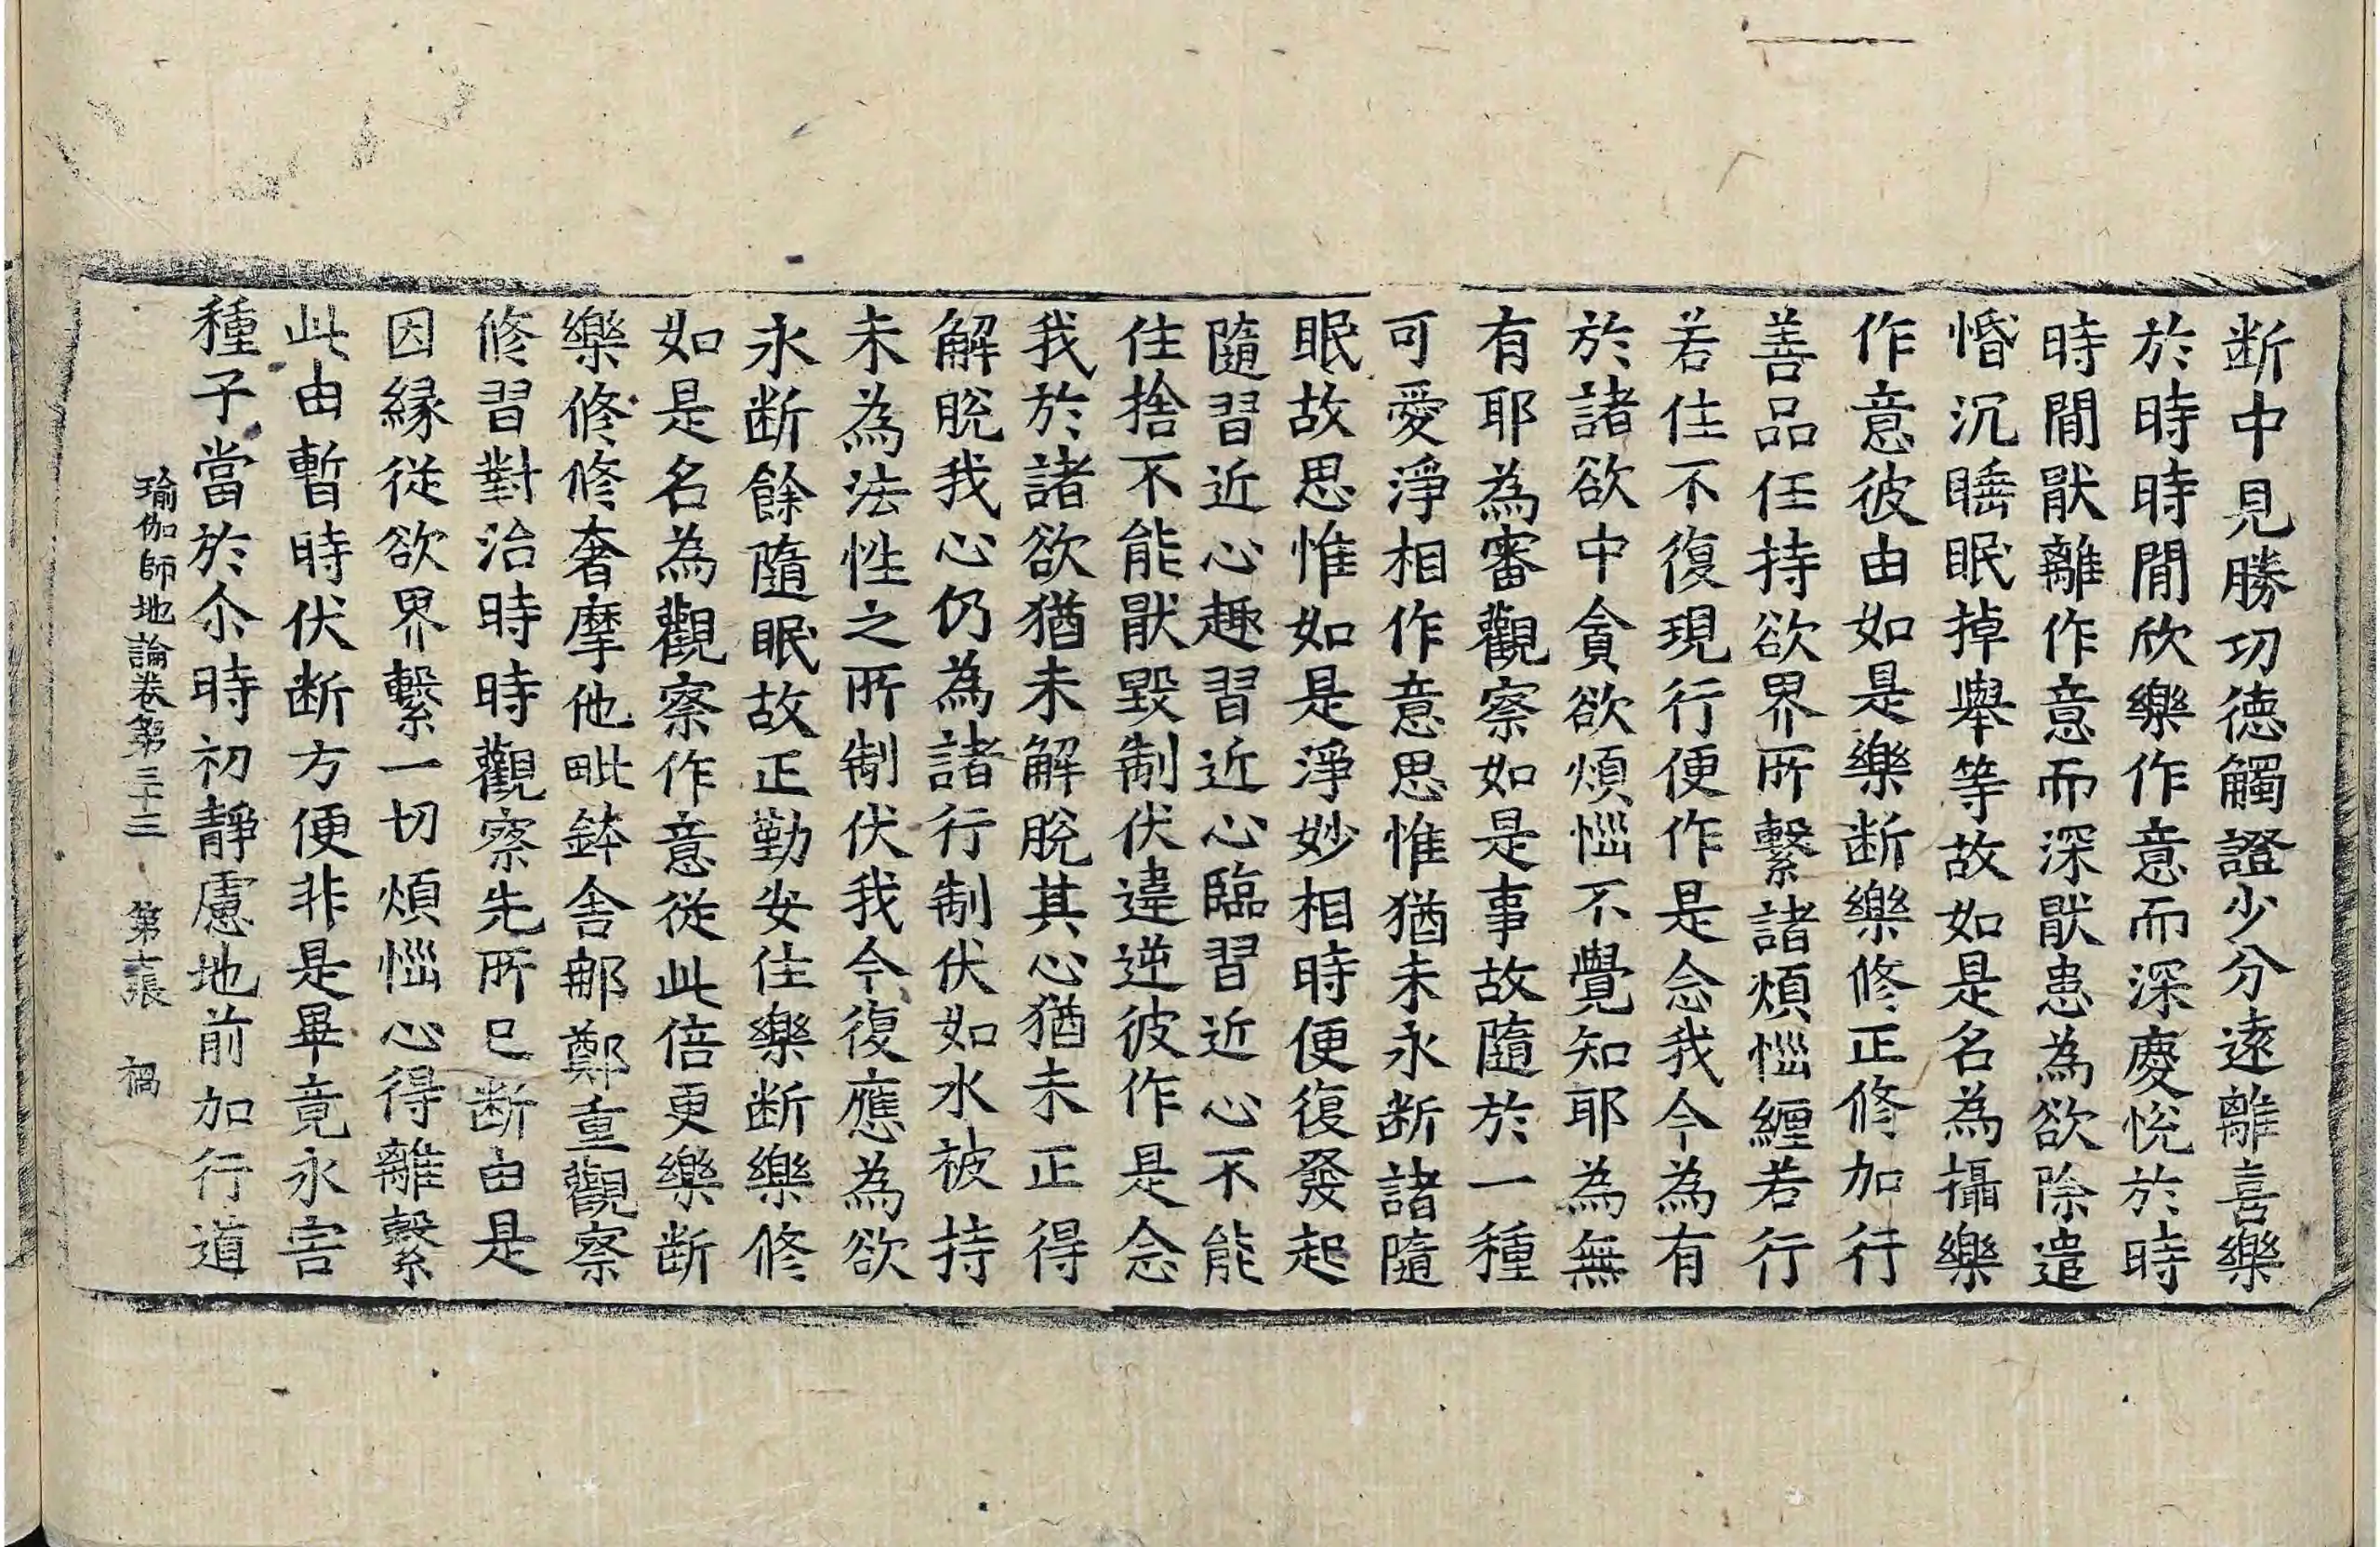 断中見勝切徳觸證少分遠離喜樂
於時時間欣樂作意而深慶恱於時
時間猒離作意而深猒患為欲除遣
惛沉睡眠掉舉等故如是名為攝樂
作意彼由如是樂断樂修正修加行
善品任持欲界所繫諸煩惱纏若行
若住不復現行便作是念我今為有
於諸欲中貪欲煩惱不覺知耶為無
有耶為審觀察如是事故隨於一種
可愛淨相作意思惟猶未永断諸隨
眠故思惟如是淨妙相時便復發起
隨習近心趣習近心臨習近心不能
住捨不能猒毀制伏違逆彼作是念
我於諸欲猶未解脫其心猶未正得
解脫我心仍為諸行制伏如水被持
未為法性之所制伏我今復應為欲
永断餘隨眠故正勤安住樂断樂修
如是名為觀察作意從此倍更樂断
樂修修奢摩他毗鉢舍那鄭重觀察
修習對治時時觀察先所已断由是
因縁從欲界繫一切煩惱心得離繫
此由暫時伏断方便非是畢竟永害
種子當於尒時初靜慮地前加行道
瑜伽師地論卷第三十三 第十張 禍